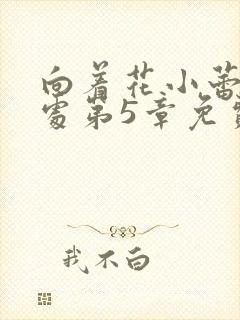 向着花小蕾
处第5章免
我不白